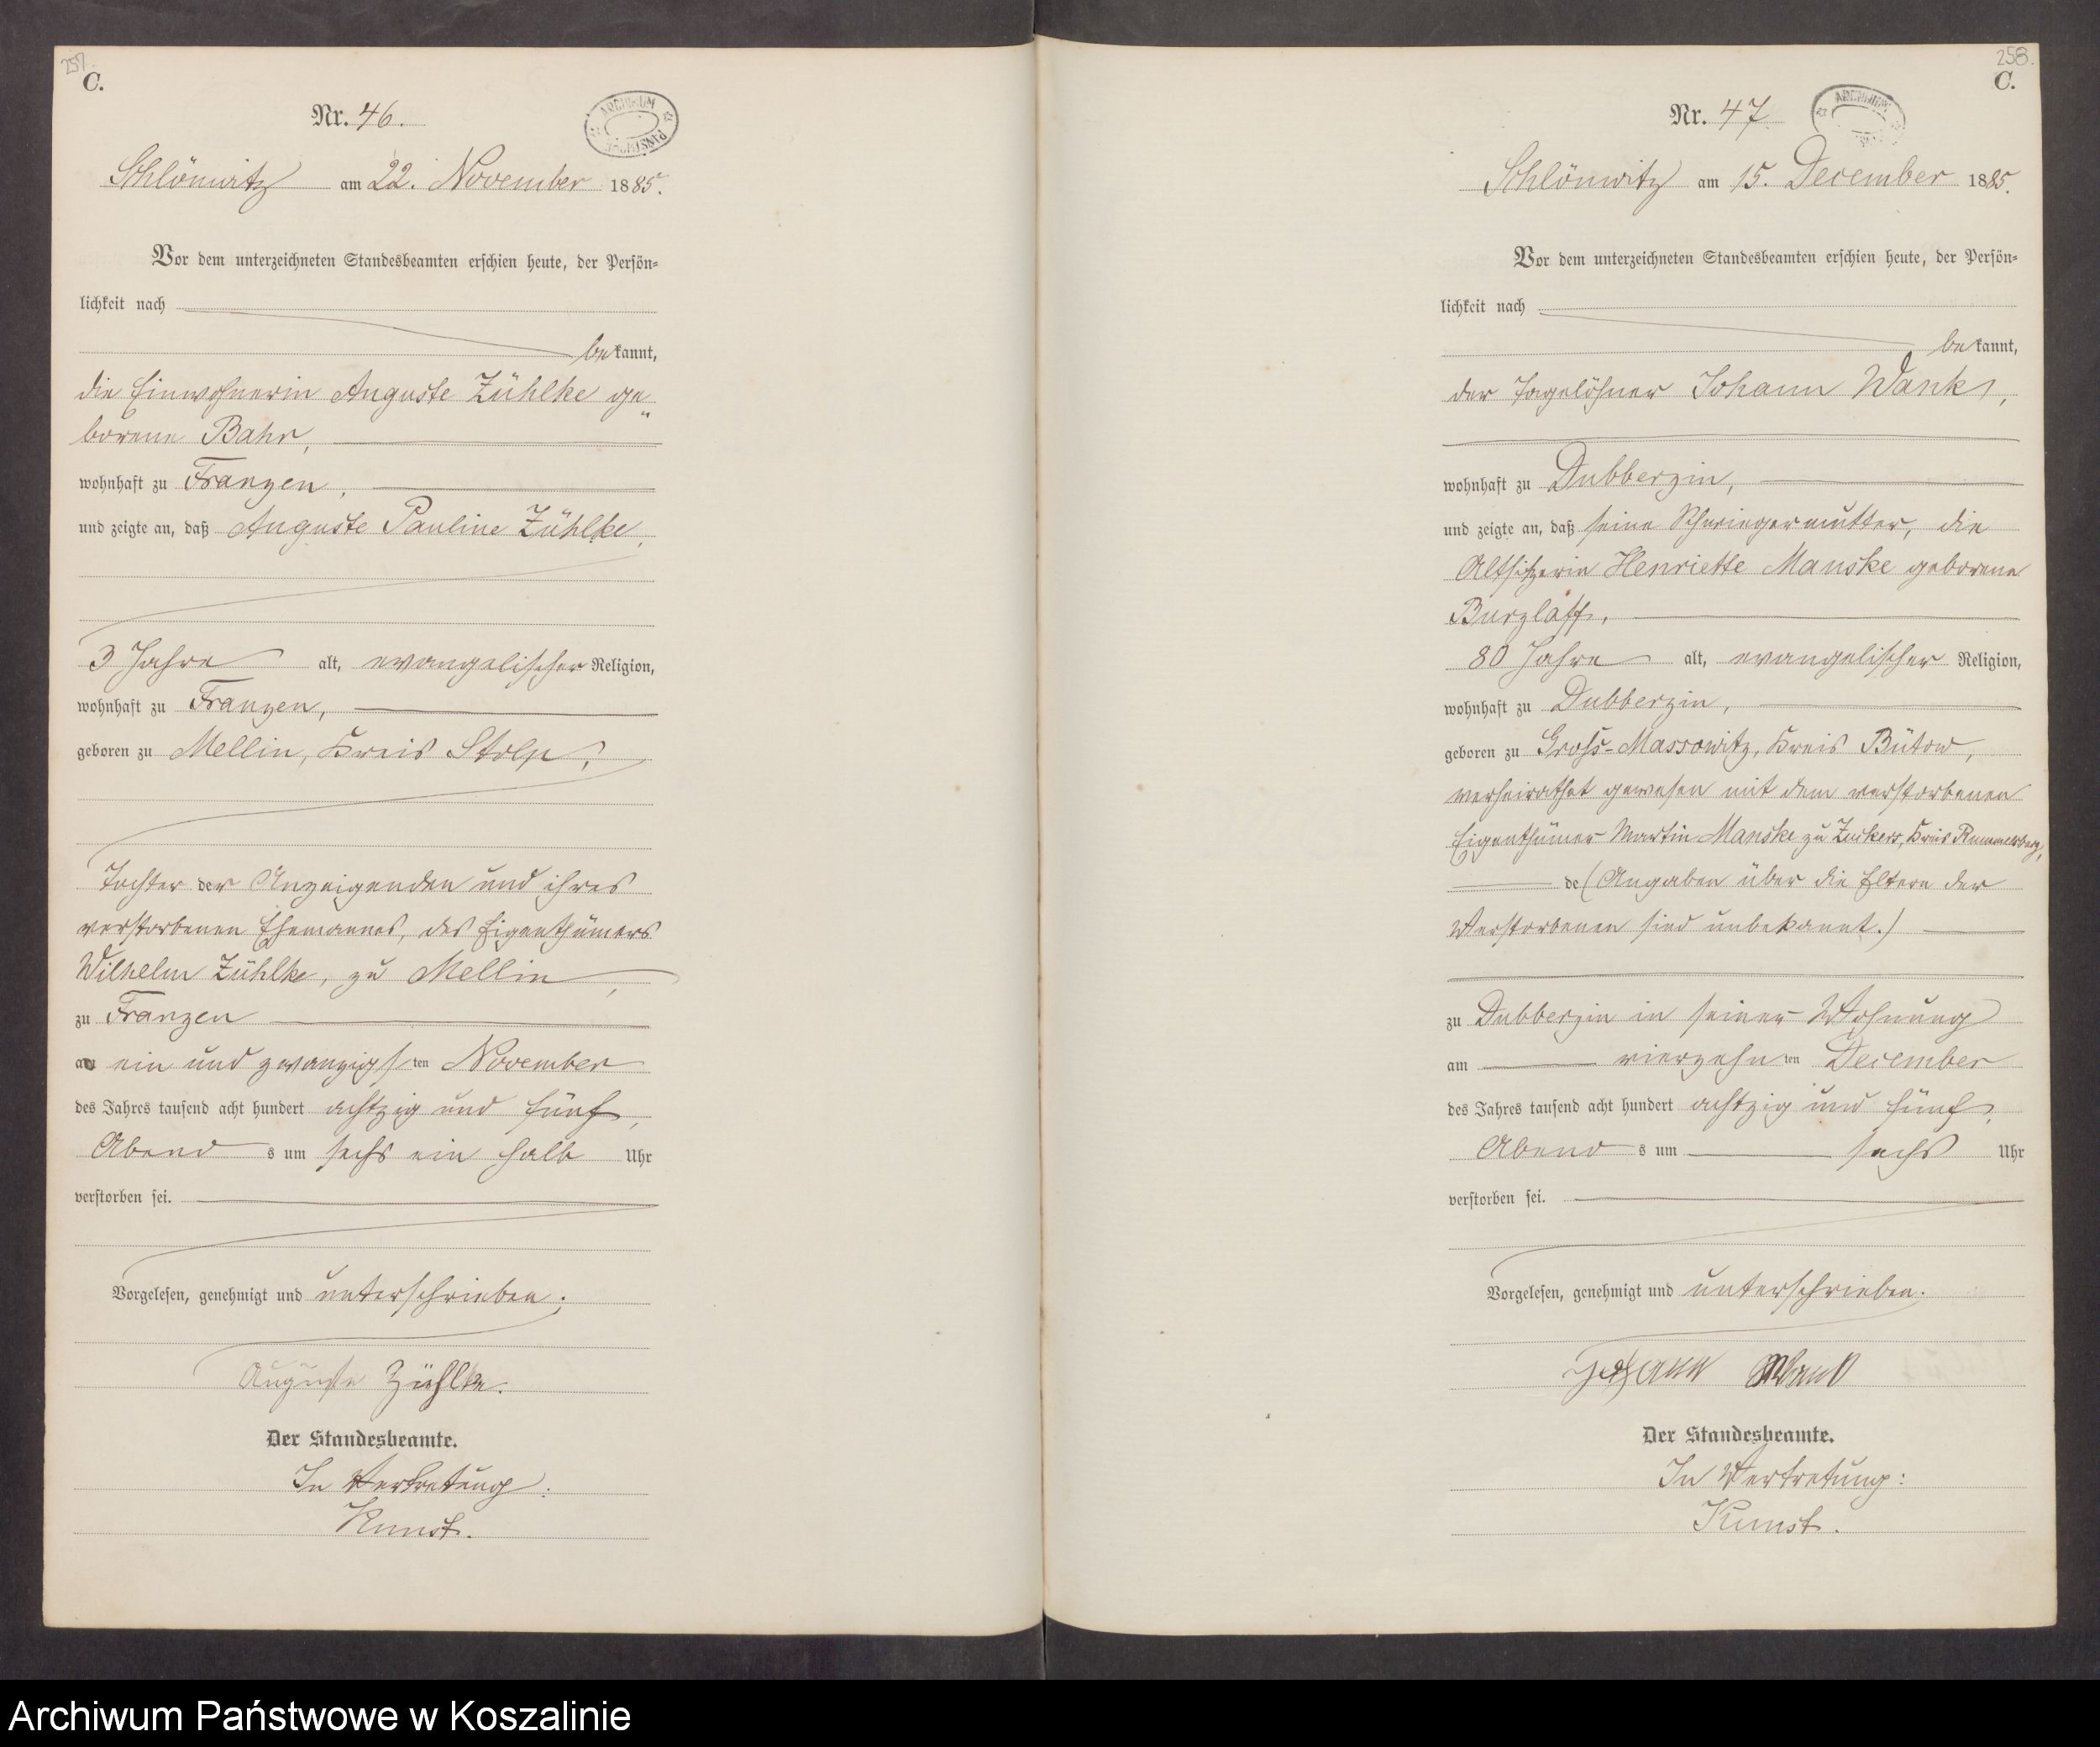 257.
C.
Nr. 46.
ARCHIWUM
Schlönwitz am 22. November 1885.
Vor dem unterzeichneten Standesbeamten erschien heute, der Persön=
lichkeit nach
bekannt,
die Einwohnerin Auguste Zühlke ge„
borene Bahr,
wohnhaft zu Franzen,
und zeigte an, daß Auguste Pauline Zühlke,
3 Jahre alt, evangelischer Religion,
wohnhaft zu Franzen,
geboren zu Mellin, Kreis Stolp,
Tochter der Anzeigenden und ihres
verstorbenen Ehemannes, des Eigenthümers
Wilhelm Zühlke, zu Mellin,
zu Franzen
am ein und zwanzigsten November
des Jahres tausend acht hundert achtzig und fünf,
Abends um sechs ein halb Uhr
verstorben sei.
Vorgelesen, genehmigt und unterschrieben;
Auguste Zühlke.
Der Standesbeamte.
In Vertretung:
Kunst.
258.
C.
Nr. 47
ARCHIWUM
Schlönwitz am 15. December 1885.
Vor dem unterzeichneten Standesbeamten erschien heute, der Persön=
lichkeit nach
bekannt,
der Tagelöhner Johann Wank,
wohnhaft zu Dubberzin,
und zeigte an, daß seine Schwiegermutter, die
Altsitzerin Henriette Manske geborene
Burzlaff,
80 Jahre alt, evangelischer Religion,
wohnhaft zu Dubberzin,
geboren zu Gross-Massowitz, Kreis Bütow,
verheirathet gewesen mit dem verstorbenen
Eigenthümer Martin Manske zu Zuckers, Kreis Rummelsburg,
de (Angaben über die Eltern der
Verstorbenen sind unbekannt.)
zu Dubberzin in seiner Wohnung
am vierzehnten December
des Jahres tausend acht hundert achtzig und fünf,
Abends um sechs Uhr
verstorben sei.
Vorgelesen, genehmigt und unterschrieben.
Johann Wank
Der Standesbeamte.
In Vertretung:
Kunst.
Archiwum Państwowe w Koszalinie